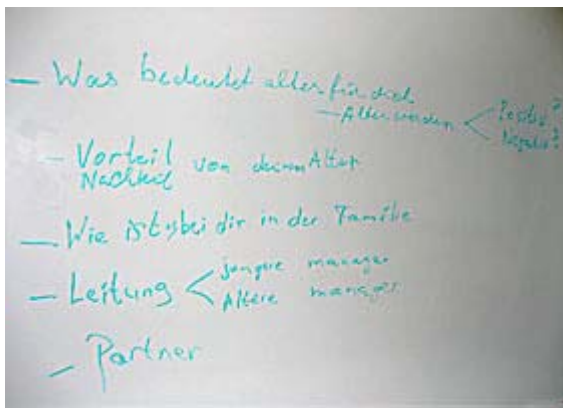 - Was bedeutet alter für dich
- Alter werden < Positiv?
Negativ?
- Vorteil
Nachteil von deinem Alter
- Wie ist es bei dir in der Familie
- Leitung < jüngere manager
Altere manager
- Partner